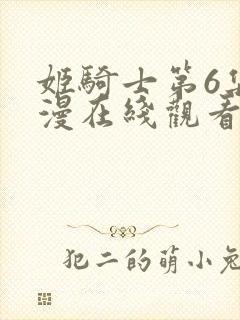 姬騎士第6集
漫在綫觀看
犯二的萌小兔